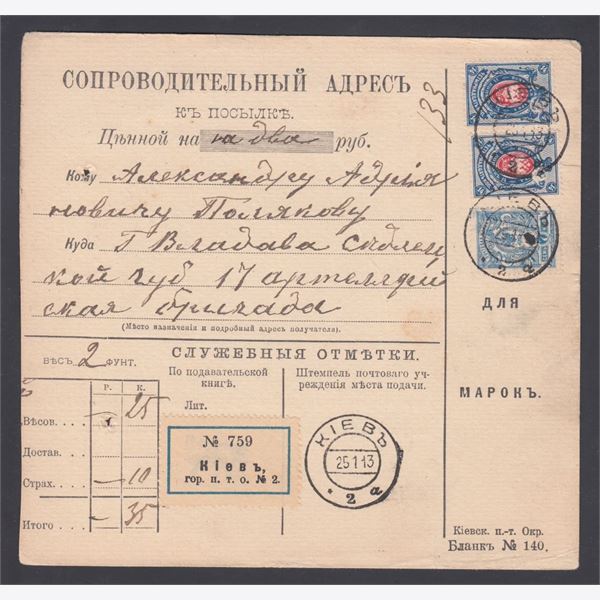 СОПРОВОДИТЕЛЬНЫЙ АДРЕСЪ
КЪ ПОСЫЛКѢ.
133
Цѣнной на на два руб.
Кому Александру Адрія
новичу Полякову
Куда Г Владава Сѣдлец
кой губ 17 артеллрій
ская бригада
(Мѣсто назначенія и подробный адресъ получателя).
ДЛЯ
МАРОКЪ.
ВѢСЪ 2 ФУНТ.
СЛУЖЕБНЫЯ ОТМѢТКИ.
По подавательской
книгѣ.
Лит.
Штемпель почтоваго уч-
режденія мѣста подачи.
Р. К.
Вѣсов. 25
Достав.
Страх. 10
Итого 35
№ 759
Кіевъ,
гор. п. т. о. № 2.
КІЕВЪ
25 1 13
* 2 а
Кіевск. п.-т. Окр.
Бланкъ № 140.